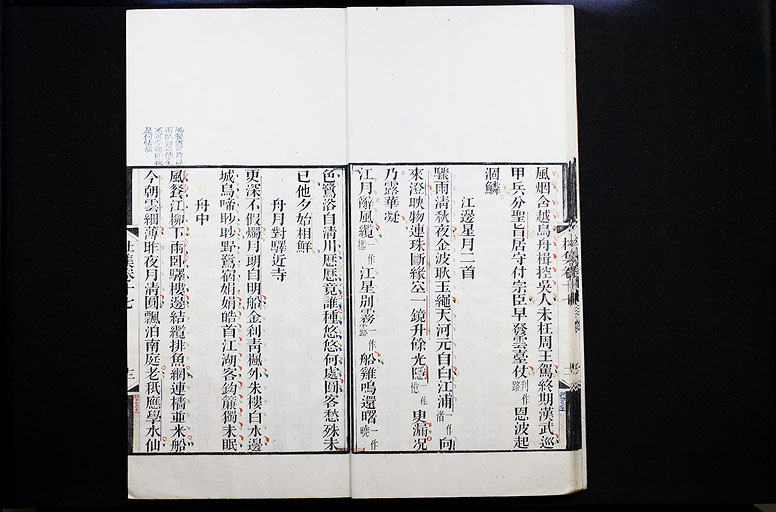 風烟含越鳥舟楫控吳人未枉周王駕終期漢武巡
甲兵分聖旨居守付宗臣早發雲臺仗恩波起
涸鱗
江邊星月二首
驟雨清秋夜金波耿玉繩天河元自白江浦一作渚向
來澄映物連珠斷緣空一鏡升餘光隱一作憶更漏况
乃露華凝
江月辭風纜一作檻江星別霧一作露船雞鳴還曙一作曉
色鷺浴自清川歷歷竟誰種悠悠何處圓客愁殊未
已他夕始相鮮
舟月對驛近寺
更深不假燭月朗自明船金刹青楓外朱樓白水邊
城烏啼眇眇野鷺宿娟娟皓首江湖客鈎簾獨未眠
舟中
風餐江柳下雨臥驛樓邊結纜排魚網連檣並米船
今朝雲細薄昨夜月清圓飄泊南庭老秪應學水仙
杜集卷十七